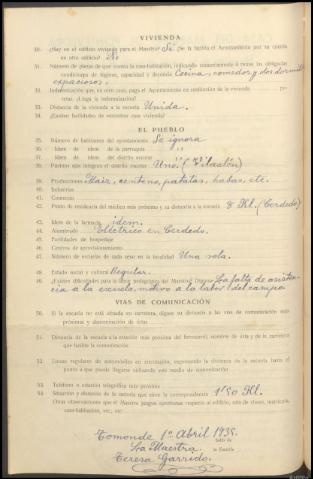 VIVIENDA
30. ¿Hay en el edificio vivienda para el Maestro? Sí ¿Se la facilita el Ayuntamiento por su cuenta
en otro edificio? No
31. Número de piezas de que consta la casa-habitación, indicando someramente si reúne las obligadas
condiciones de higiene, capacidad y decencia Cocina, comedor y dos dormit.
espaciosos
32. Indemnización que, en otro caso, paga el Ayuntamiento en sustitución de la vivienda
¿Llega la indemnización?
33. Distancia de la vivienda a la escuela Unida.
34. ¿Existen facilidades de encontrar casa vivienda?
EL PUEBLO
35. Número de habitantes del ayuntamiento Se ignora
36. Idem de ídem de la parroquia "
37. Idem de ídem del distrito escolar "
38. Núcleos que integran el distrito escolar Uno
39. Producciones Maiz, centeno, patatas, habas, etc.
40. Industrias
41. Comercio
42. Punto de residencia del médico más próximo y su distancia a la escuela 8 Kl. (Cerdedo)
43. Idem de la farmacia idem.
44. Alumbrado Eléctrico en Cerdedo.
45. Facilidades de hospedaje
46. Centros de aprovisionamiento
47. Número de escuelas de cada sexo en la localidad Una sola.
48. Estado social y cultural Regular.
49. ¿Existen dificultades para la obra pedagógica del Maestro? La falta de asisten-
cia a la escuela, motivo a la labor del campo
VIAS DE COMUNICACIÓN
50. Si la escuela no está situada en carretera, dígase su distancia a las vías de comunicación más
próximas y denominación de éstas
51. Distancia de la escuela a la estación más próxima del ferrocarril, nombre de ésta y de la carretera
que facilita la comunicación
52. Líneas regulares de automóviles en circulación, expresando la distancia de la escuela hasta el
punto a que puede llegarse utilizando este medio de comunicación
53. Teléfono o estación telegráfica más próximo
54. Situación y distancia de la escuela que sirve la correspondencia 1'50 Kl.
Otras observaciones que el Maestro juzgue oportunas respecto al edificio, sala de clases, matrícula,
casa-habitación, etc., etc.
Tomonde 1º Abril 1935.
La Maestra
Teresa Garrido.